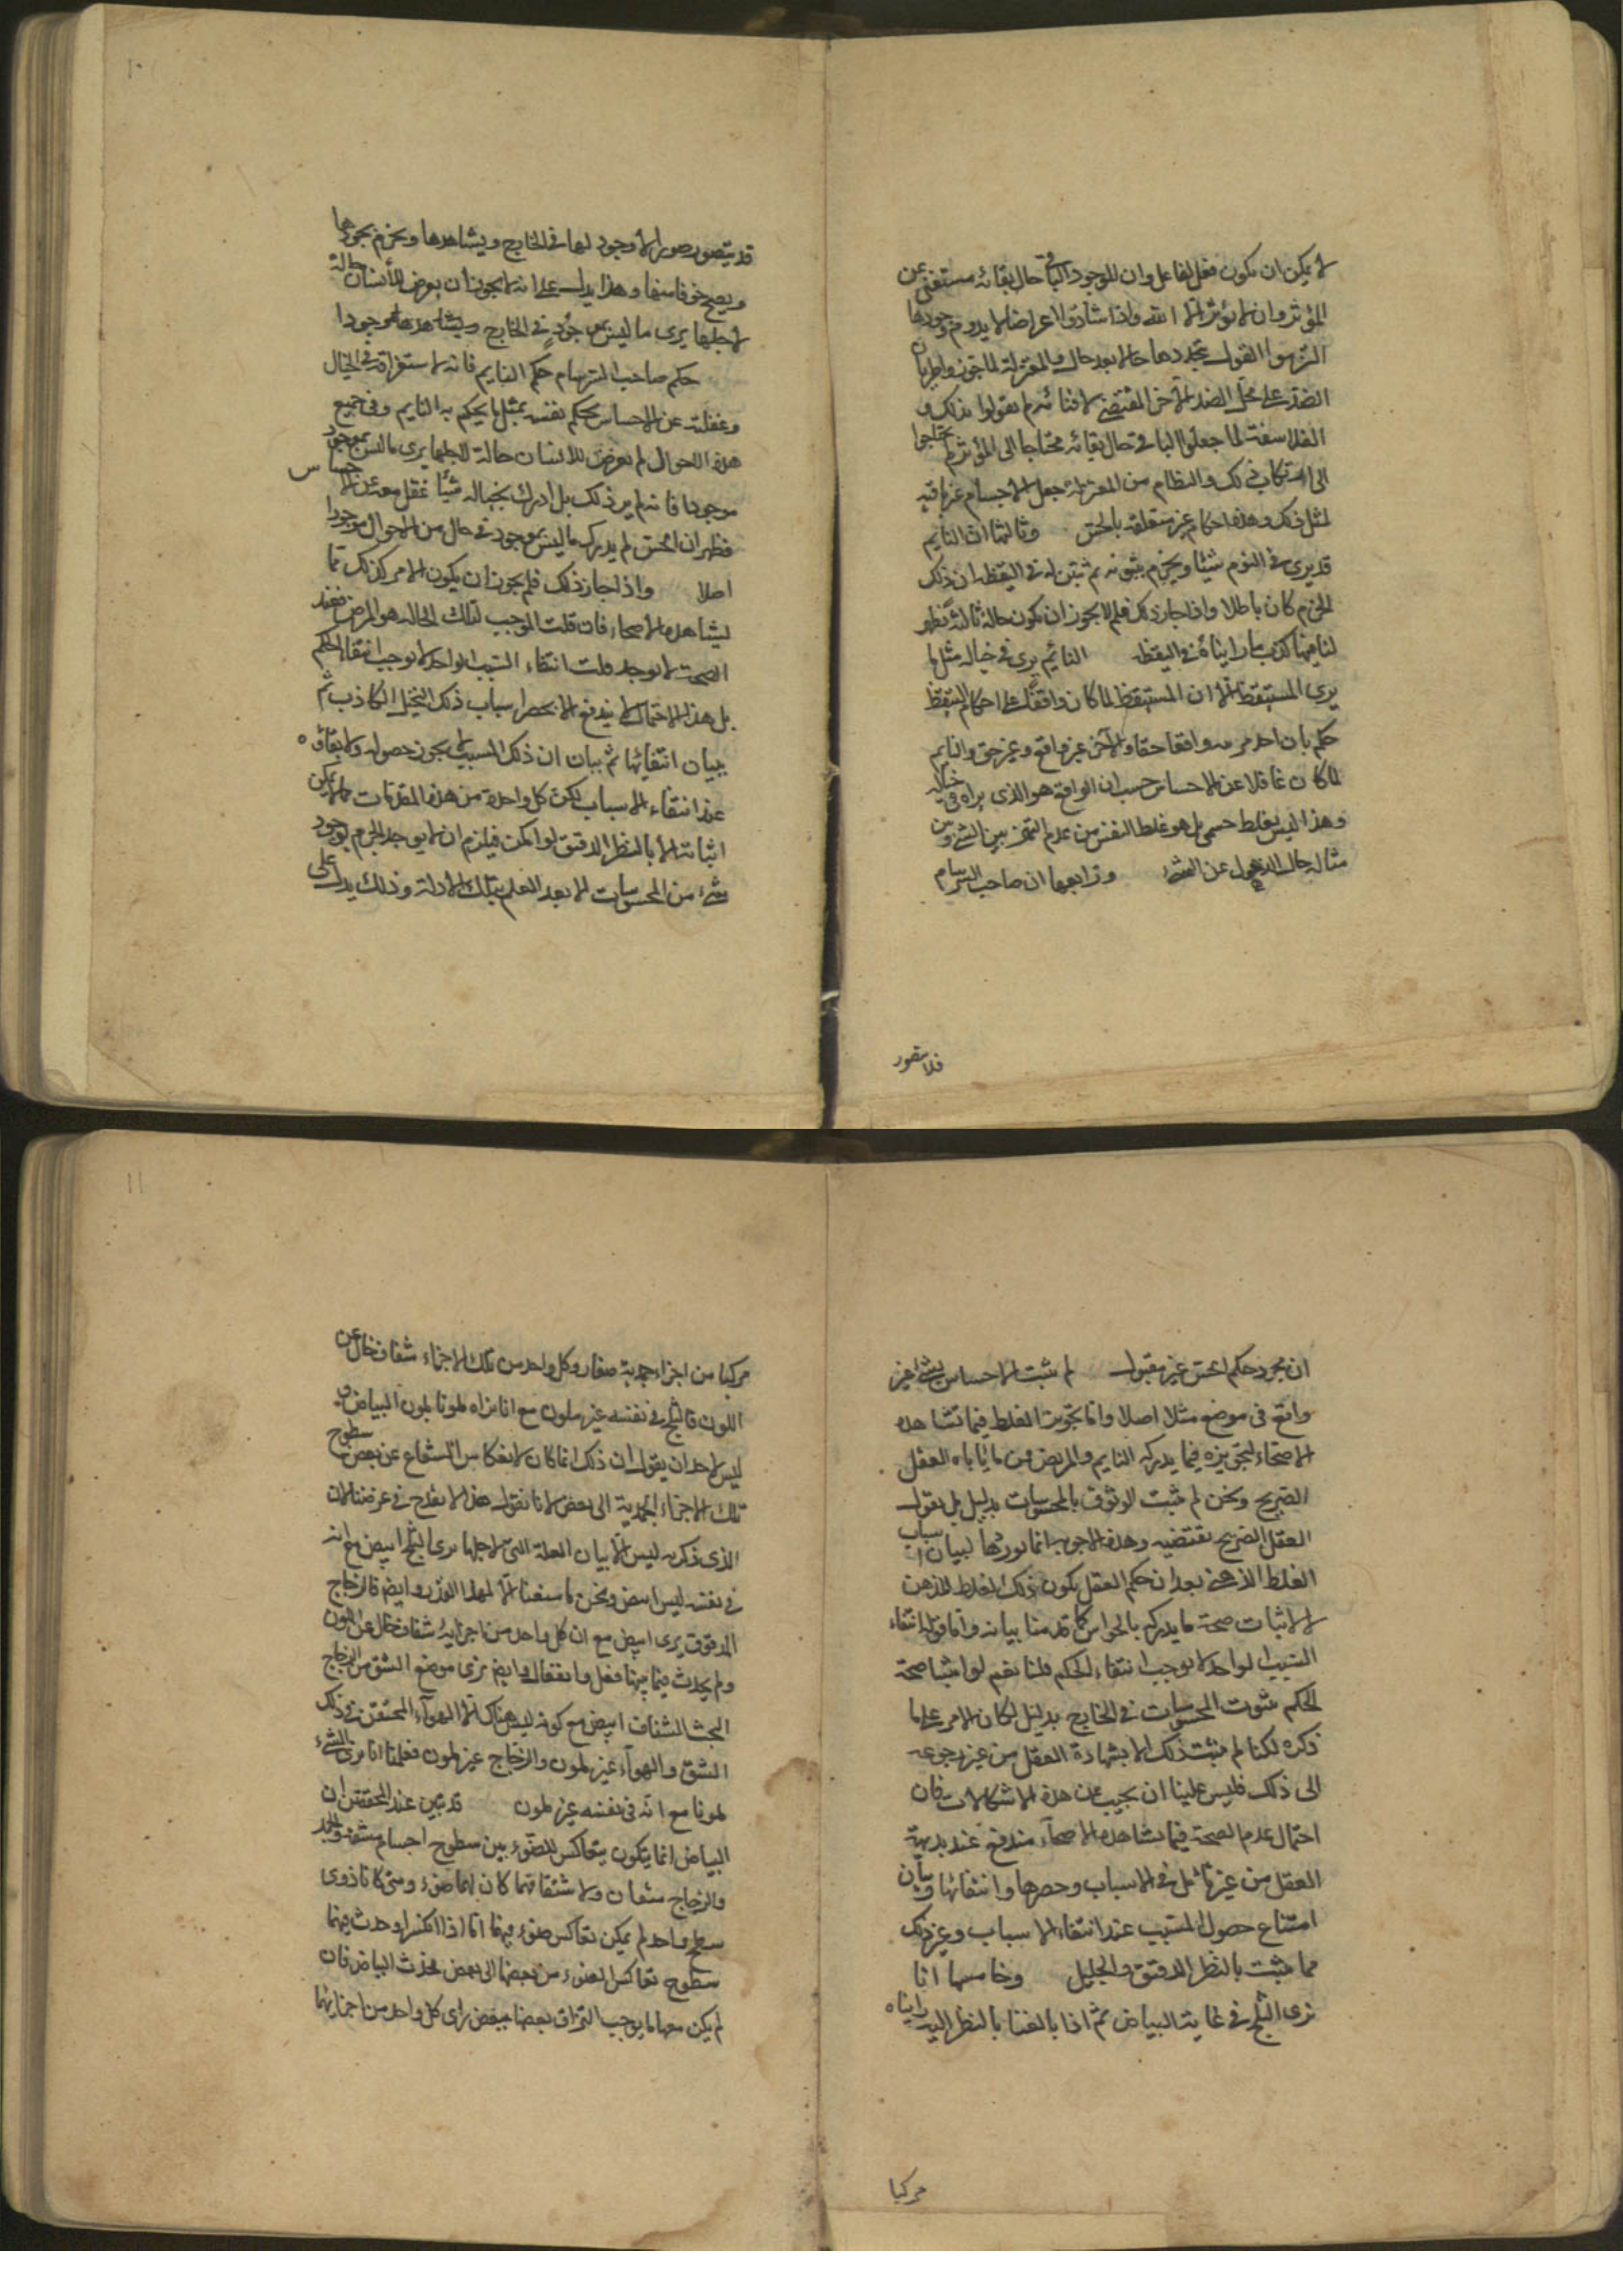 لا يمكن ان يكون فعل لفاعل وان للوجود الباقي حال بقائه مستغنى عن
المؤثر وان لا مؤثر الا الله واذا شاذوا الاعراض لا يدوم وجودها
التزموا القول بتجددها حالا بعد حال والمعتزلة لما جوزوا طريان
الضد على محل الضد الآخر المقتضى لافنائه لم يقولوا بذلك و
الفلاسفة لما جعلوا الباقي حال بقائه محتاجا الى المؤثر لم يحتاجوا
الى ارتكاب ذلك والنظام من المعتزلة جعل الاجسام غير باقية
لمثل ذلك وهذه احكام غير متعلقة بالحس وثالثها ان النايم
قد يرى في النوم شيئا ويجزم بثبوته ثم تبين له في اليقظة ان ذلك
الجزم كان باطلا واذا جاز ذلك فلم لا يجوز ان يكون حالة ثالثة تظهر
لنا فيها كذب ما رايناه في اليقظة النائم يرى في خياله مثل ما
يرى المستيقظ الا ان المستيقظ لما كان واقفا على احكام اليقظة
حكم بان احد مرييه واقفا حقا والآخر غير واقع وغير حق والنايم
لما كان غافلا عن الاحساس حسب ان الواقع هو الذي يراه في خياله
وهذا ليس بغلط حسي بل هو غلط النفس من عدم التميز بين الشئ وبين
مثاله حال الذهول عن الشئ ورابعها ان صاحب السرسام
فلا يتصور
١٠
قد يتصور صورا لا وجود لها في الخارج ويشاهدها ويجزم بوجودها
ويصيح خوفا منها وهذا يدل على انه لا يجوز ان يعرض للانسان حالة
لاجلها يرى ما ليس بموجود في الخارج ويشاهدها موجودا
حكم صاحب السرسام حكم النايم فانه لاستغراقه في الخيال
وغفلته عن الاحساس يحكم نفسه بمثل ما يحكم به النايم وفي جميع
هذه الاحوال لم يعرض للانسان حالة لاجلها يرى ما ليس بموجود
موجودا فانه لم ير ذلك بل ادرك بخياله شيئا غفل معه عن الاحساس
فظهر ان الحس لم يدرك ما ليس بموجود في حال من الاحوال موجودا
اصلا واذا جاز ذلك فلم يجوز ان يكون الامر كذلك فيما
يشاهده الاصحاء فان قلت الموجب لتلك الحالة هو المرض فعند
الصحة لا يوجد قلت انتفاء السبب الواحد لا يوجب انتفاء الحكم
بل هذا الاحتمال لا يندفع الا بحصر اسباب ذلك التخيل الكاذب ثم
ببيان انتفائها ثم ببيان ان ذلك المسبب لا يجوز حصوله ولا بقاؤه
عند انتفاء الاسباب لكن كل واحدة من هذه المقدمات مما لا يمكن
اثباته الا بالنظر الدقيق لو امكن فيلزم ان لا يوجد الجزم بوجود
شئ من المحسوسات الا بعد العلم بتلك الادلة وذلك يدل على
ان مجرد حكم الحس غير مقبول لم يثبت الاحساس بشئ غير
واقع في موضع مثلا اصلا واما تجويز الغلط فيما تشاهده
الاصحاء لتجويزه فيما يدركه النايم والمريض فمما ياباه العقل
الصريح ونحن لم نثبت الوثوق بالمحسوسات بدليل بل نقول
العقل الصريح يقتضيه وهذه الاجوبة انما نوردها لبيان اسباب
الغلط الذهني بعد ان حكم العقل بكون ذلك الغلط للذهن
لا لاثبات صحة ما يدركه بالحواس كما قدمنا بيانه واما قوله انتفاء
السبب الواحد لا يوجب انتفاء الحكم قلنا نعم لو اثبتنا صحة
الحكم بثبوت المحسوسات في الخارج بدليل لكان الامر على ما
ذكره لكنا لم نثبت ذلك الا بشهادة العقل من غير رجوعه
الى ذلك فليس علينا ان نجيب عن هذه الاشكالات فان
احتمال عدم الصحة فيما تشاهده الاصحاء مندفع عند بديهة
العقل من غير تامل في الاسباب وحصرها وانتفائها وبيان
امتناع حصول المسبب عند انتفاء الاسباب وغير ذلك
مما يثبت بالنظر الدقيق والجليل وخامسها انا
نرى الثلج في غاية البياض ثم اذا بالغنا بالنظر اليه رايناه
مركبا
١١
مركبا من اجزاء جمدية صغار وكل واحد من تلك الاجزاء شفاف خال عن
اللون فالثلج في نفسه غير ملون مع انا نراه ملونا بلون البياض و
ليس لاحد ان يقول ان ذلك انما كان لانعكاس الشعاع عن بعض سطوح
تلك الاجزاء الجمدية الى بعض لانا نقول هذا لا يقدح في غرضنا لان
الذي ذكرته ليس الا بيان العلة التي لاجلها نرى الثلج ابيض مع انه
في نفسه ليس ابيض ونحن ما سعينا الا لهذا القدر وايضا فالزجاج
المدقوق يرى ابيض مع ان كل واحد من اجزائه شفاف خال عن اللون
ولم يحدث فيما بينها فعل وانفعال وايضا نرى موضع الشق من الزجاج
الجث الشفاف ابيض مع كونه ليس هناك الا الهواء المحتقن في ذلك
الشق والهواء غير ملون والزجاج غير ملون فعلمنا انا نرى الشئ
ملونا مع انه في نفسه غير ملون قد تبين عند المحققين ان
البياض انما يتكون بتعاكس الضوء بين سطوح اجسام مشفة والجمد
والزجاج شفان ولاشفافهما كان لهما ضوء ومتى كانا ذوى
سطح واحد لم يمكن تعاكس ضوء فيهما اما اذا انكسرا وحدث فيهما
سطوح تعاكس الضوء من بعضها الى بعض فحدث البياض فان
لم يكن معها ما يوجب التزاق بعضها ببعض راى كل واحد من اجزائها